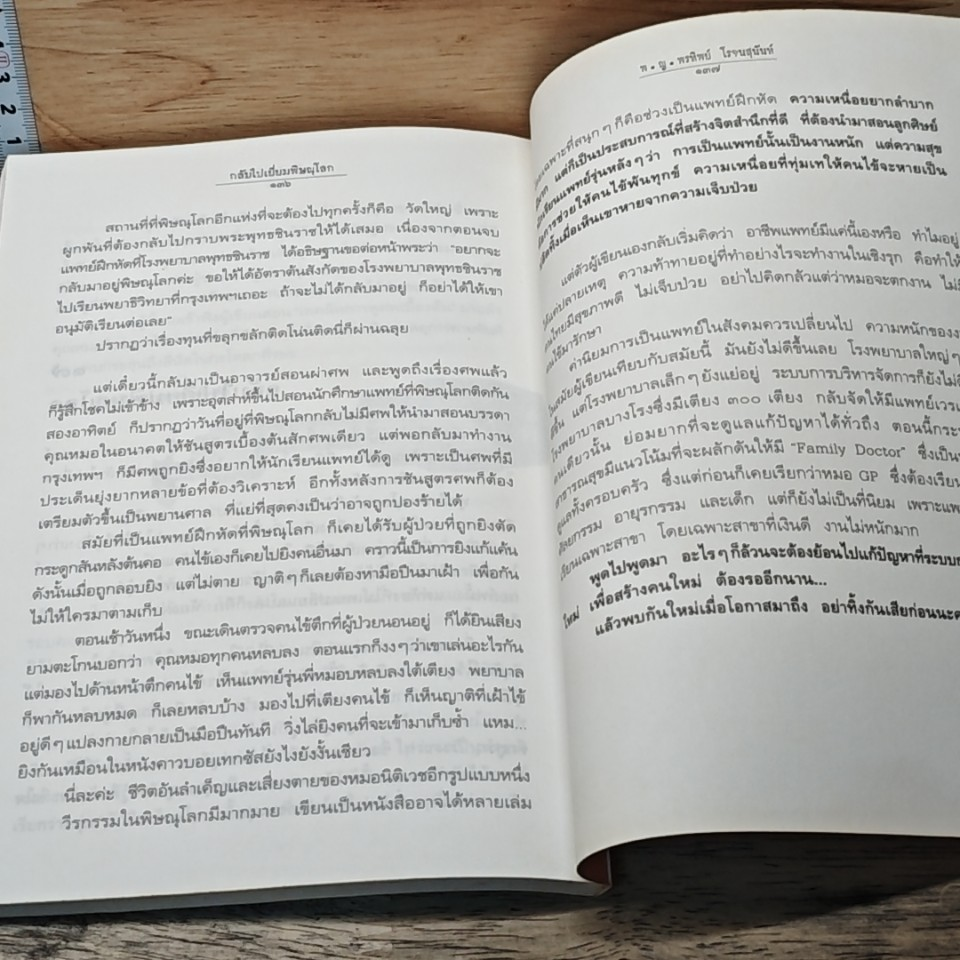 กลับไปเยี่ยมพิษณุโลก
๑๓๖
สถานที่ที่พิษณุโลกอีกแห่งที่จะต้องไปทุกครั้งก็คือ วัดใหญ่ เพราะ
ผูกพันที่ต้องกลับไปกราบพระพุทธชินราชให้ได้เสมอ เนื่องจากตอนจบ
แพทย์ฝึกหัดที่โรงพยาบาลพุทธชินราช ได้อธิษฐานขอต่อหน้าพระว่า "อยากจะ
กลับมาอยู่พิษณุโลกค่ะ ขอให้ได้อัตราต้นสังกัดของโรงพยาบาลพุทธชินราช
ไปเรียนพยาธิวิทยาที่กรุงเทพฯเถอะ ถ้าจะไม่ได้กลับมาอยู่ ก็อย่าได้ให้เขา
อนุมัติเรียนต่อเลย"
ปรากฏว่าเรื่องทุนที่ขลุกขลักติดโน่นติดนี่ก็ผ่านฉลุย
แต่เดี๋ยวนี้กลับมาเป็นอาจารย์สอนผ่าศพ และพูดถึงเรื่องศพแล้ว
ก็รู้สึกโชคไม่เข้าข้าง เพราะอุตส่าห์ขึ้นไปสอนนักศึกษาแพทย์ที่พิษณุโลกติดกัน
สองอาทิตย์ ก็ปรากฏว่าวันที่อยู่ที่พิษณุโลกกลับไม่มีศพให้นำมาสอนบรรดา
คุณหมอในอนาคตให้ชันสูตรเบื้องต้นสักศพเดียว แต่พอกลับมาทำงาน
กรุงเทพฯ ก็มีศพถูกยิงซึ่งอยากให้นักเรียนแพทย์ได้ดู เพราะเป็นศพที่มี
ประเด็นยุ่งยากหลายข้อที่ต้องวิเคราะห์ อีกทั้งหลังการชันสูตรศพก็ต้อง
เตรียมตัวขึ้นเป็นพยานศาล ที่แย่ที่สุดคงเป็นว่าอาจถูกปองร้ายได้
สมัยที่เป็นแพทย์ฝึกหัดที่พิษณุโลก ก็เคยได้รับผู้ป่วยที่ถูกยิงตัด
กระดูกสันหลังต้นคอ คนไข้เองก็เคยไปยิงคนอื่นมา คราวนี้เป็นการยิงแก้แค้น
ดังนั้นเมื่อถูกลอบยิง แต่ไม่ตาย ญาติๆก็เลยต้องหามือปืนมาเฝ้า เพื่อกัน
ไม่ให้ใครมาตามเก็บ
ตอนเช้าวันหนึ่ง ขณะเดินตรวจคนไข้ตึกที่ผู้ป่วยนอนอยู่ ก็ได้ยินเสียง
ยามตะโกนบอกว่า คุณหมอทุกคนหลบลง ตอนแรกก็งงๆว่าเขาเล่นอะไรกัน
แต่มองไปด้านหน้าตึกคนไข้ เห็นแพทย์รุ่นพี่หมอบหลบลงใต้เตียง พยาบาล
ก็พากันหลบหมด ก็เลยหลบบ้าง มองไปที่เตียงคนไข้ ก็เห็นญาติที่เฝ้าไข้
อยู่ดีๆแปลงกายกลายเป็นมือปืนทันที วิ่งไล่ยิงคนที่จะเข้ามาเก็บซ้ำ แหม...
ยิงกันเหมือนในหนังคาวบอยเทกซัสยังไงยังงั้นเชียว
นี่ละค่ะ ชีวิตอันลำเค็ญและเสี่ยงตายของหมอนิติเวชอีกรูปแบบหนึ่ง
วีรกรรมในพิษณุโลกมีมากมาย เขียนเป็นหนังสืออาจได้หลายเล่ม
พ.ญ.พรทิพย์ โรจนสุนันท์
๑๓๗
เฉพาะที่สนุกๆก็คือช่วงเป็นแพทย์ฝึกหัด ความเหนื่อยยากลำบาก
แต่ก็เป็นประสบการณ์ที่สร้างจิตสำนึกที่ดี ที่ต้องนำมาสอนลูกศิษย์
นักเรียนแพทย์รุ่นหลังๆว่า การเป็นแพทย์นั้นเป็นงานหนัก แต่ความสุข
คือการช่วยให้คนไข้พ้นทุกข์ ความเหนื่อยที่ทุ่มเทให้คนไข้จะหายเป็น
ปลิดทิ้งเมื่อเห็นเขาหายจากความเจ็บป่วย
แต่ตัวผู้เขียนเองกลับเริ่มคิดว่า อาชีพแพทย์มีแค่นี้เองหรือ ทำไมอยู่
แค่ปลายเหตุ ความท้าทายอยู่ที่ทำอย่างไรจะทำงานในเชิงรุก คือทำให้
คนไทยมีสุขภาพดี ไม่เจ็บป่วย อย่าไปคิดกลัวแต่ว่าหมอจะตกงาน ไม่มี
คนไข้มารักษา
ค่านิยมการเป็นแพทย์ในสังคมควรเปลี่ยนไป ความหนักของงาน
ในสมัยผู้เขียนเทียบกับสมัยนี้ มันยังไม่ดีขึ้นเลย โรงพยาบาลใหญ่ๆ
ดีขึ้น แต่โรงพยาบาลเล็กๆยังแย่อยู่ ระบบการบริหารจัดการก็ยังไม่ดี
โรงพยาบาลบางโรงซึ่งมีเตียง ๓๐๐ เตียง กลับจัดให้มีแพทย์เวร
คนเดียวนั้น ย่อมยากที่จะดูแลแก้ปัญหาได้ทั่วถึง ตอนนี้กระทรวง
สาธารณสุขมีแนวโน้มที่จะผลักดันให้มี "Family Doctor" ซึ่งเป็น
ดูแลทั้งครอบครัว ซึ่งแต่ก่อนก็เคยเรียกว่าหมอ GP ซึ่งต้องเรียน
ศัลยกรรม อายุรกรรม และเด็ก แต่ก็ยังไม่เป็นที่นิยม เพราะแพทย์
เรียนเฉพาะสาขา โดยเฉพาะสาขาที่เงินดี งานไม่หนักมาก
พูดไปพูดมา อะไรๆก็ล้วนจะต้องย้อนไปแก้ปัญหาที่ระบบ
ใหม่ เพื่อสร้างคนใหม่ ต้องรออีกนาน...
แล้วพบกันใหม่เมื่อโอกาสมาถึง อย่าทิ้งกันเสียก่อนนะ